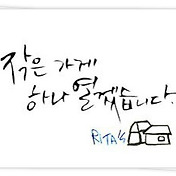 작은 가게
하나 열겠습니다.
RITA's